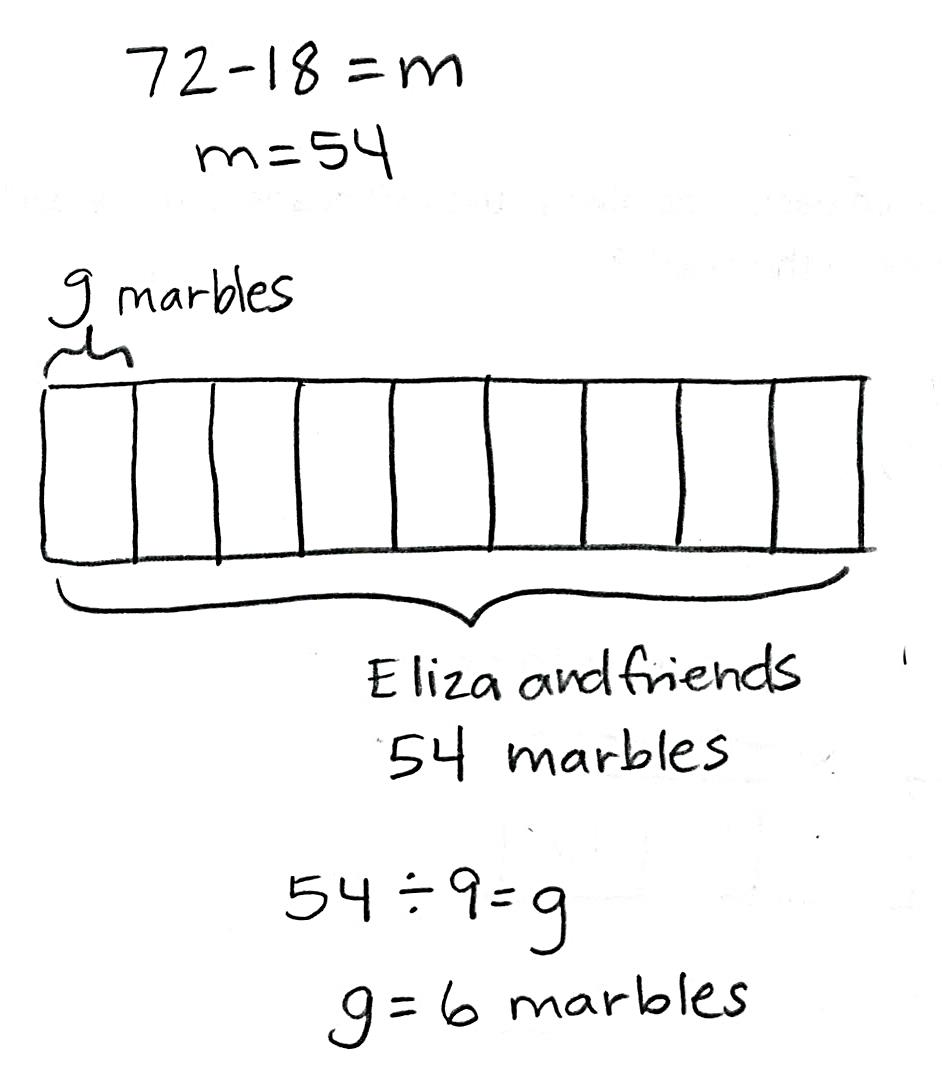 72-18=m
m=54
g marbles
Eliza and friends
54 marbles
54÷9=g
g=6 marbles